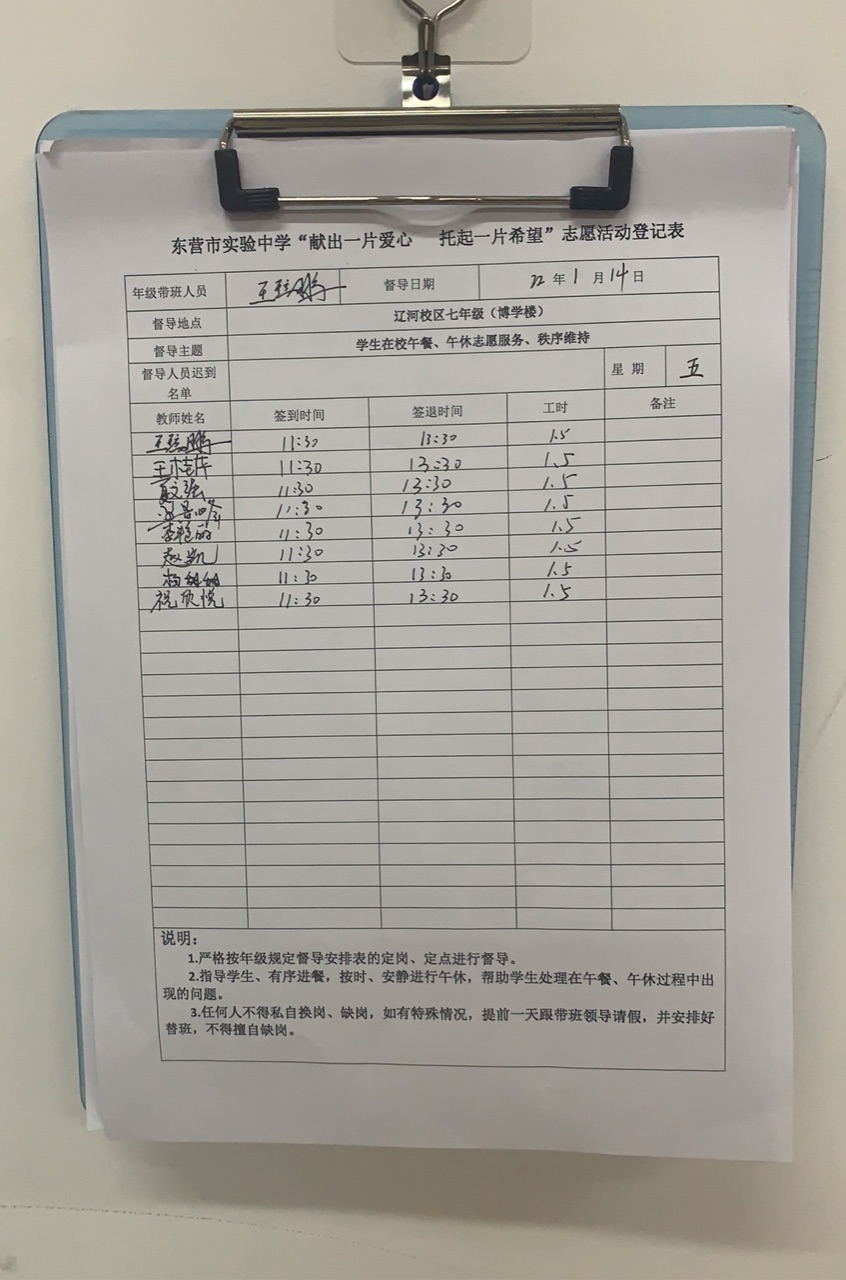 东营市实验中学“献出一片爱心 托起一片希望”志愿活动登记表
年级带班人员 督导日期 22年1月14日
督导地点 辽河校区七年级（博学楼）
督导主题 学生在校午餐、午休志愿服务、秩序维持
督导人员迟到名单 星期 五
教师姓名 签到时间 签退时间 工时 备注
11:30 13:30 1.5
王桂华 11:30 13:30 1.5
11:30 13:30 1.5
11:30 13:30 1.5
李艳丽 11:30 13:30 1.5
赵凯 11:30 13:30 1.5
11:30 13:30 1.5
祝欣悦 11:30 13:30 1.5
说明：
1.严格按年级规定督导安排表的定岗、定点进行督导。
2.指导学生、有序进餐，按时、安静进行午休，帮助学生处理在午餐、午休过程中出
现的问题。
3.任何人不得私自换岗、缺岗，如有特殊情况，提前一天跟带班领导请假，并安排好
替班，不得擅自缺岗。